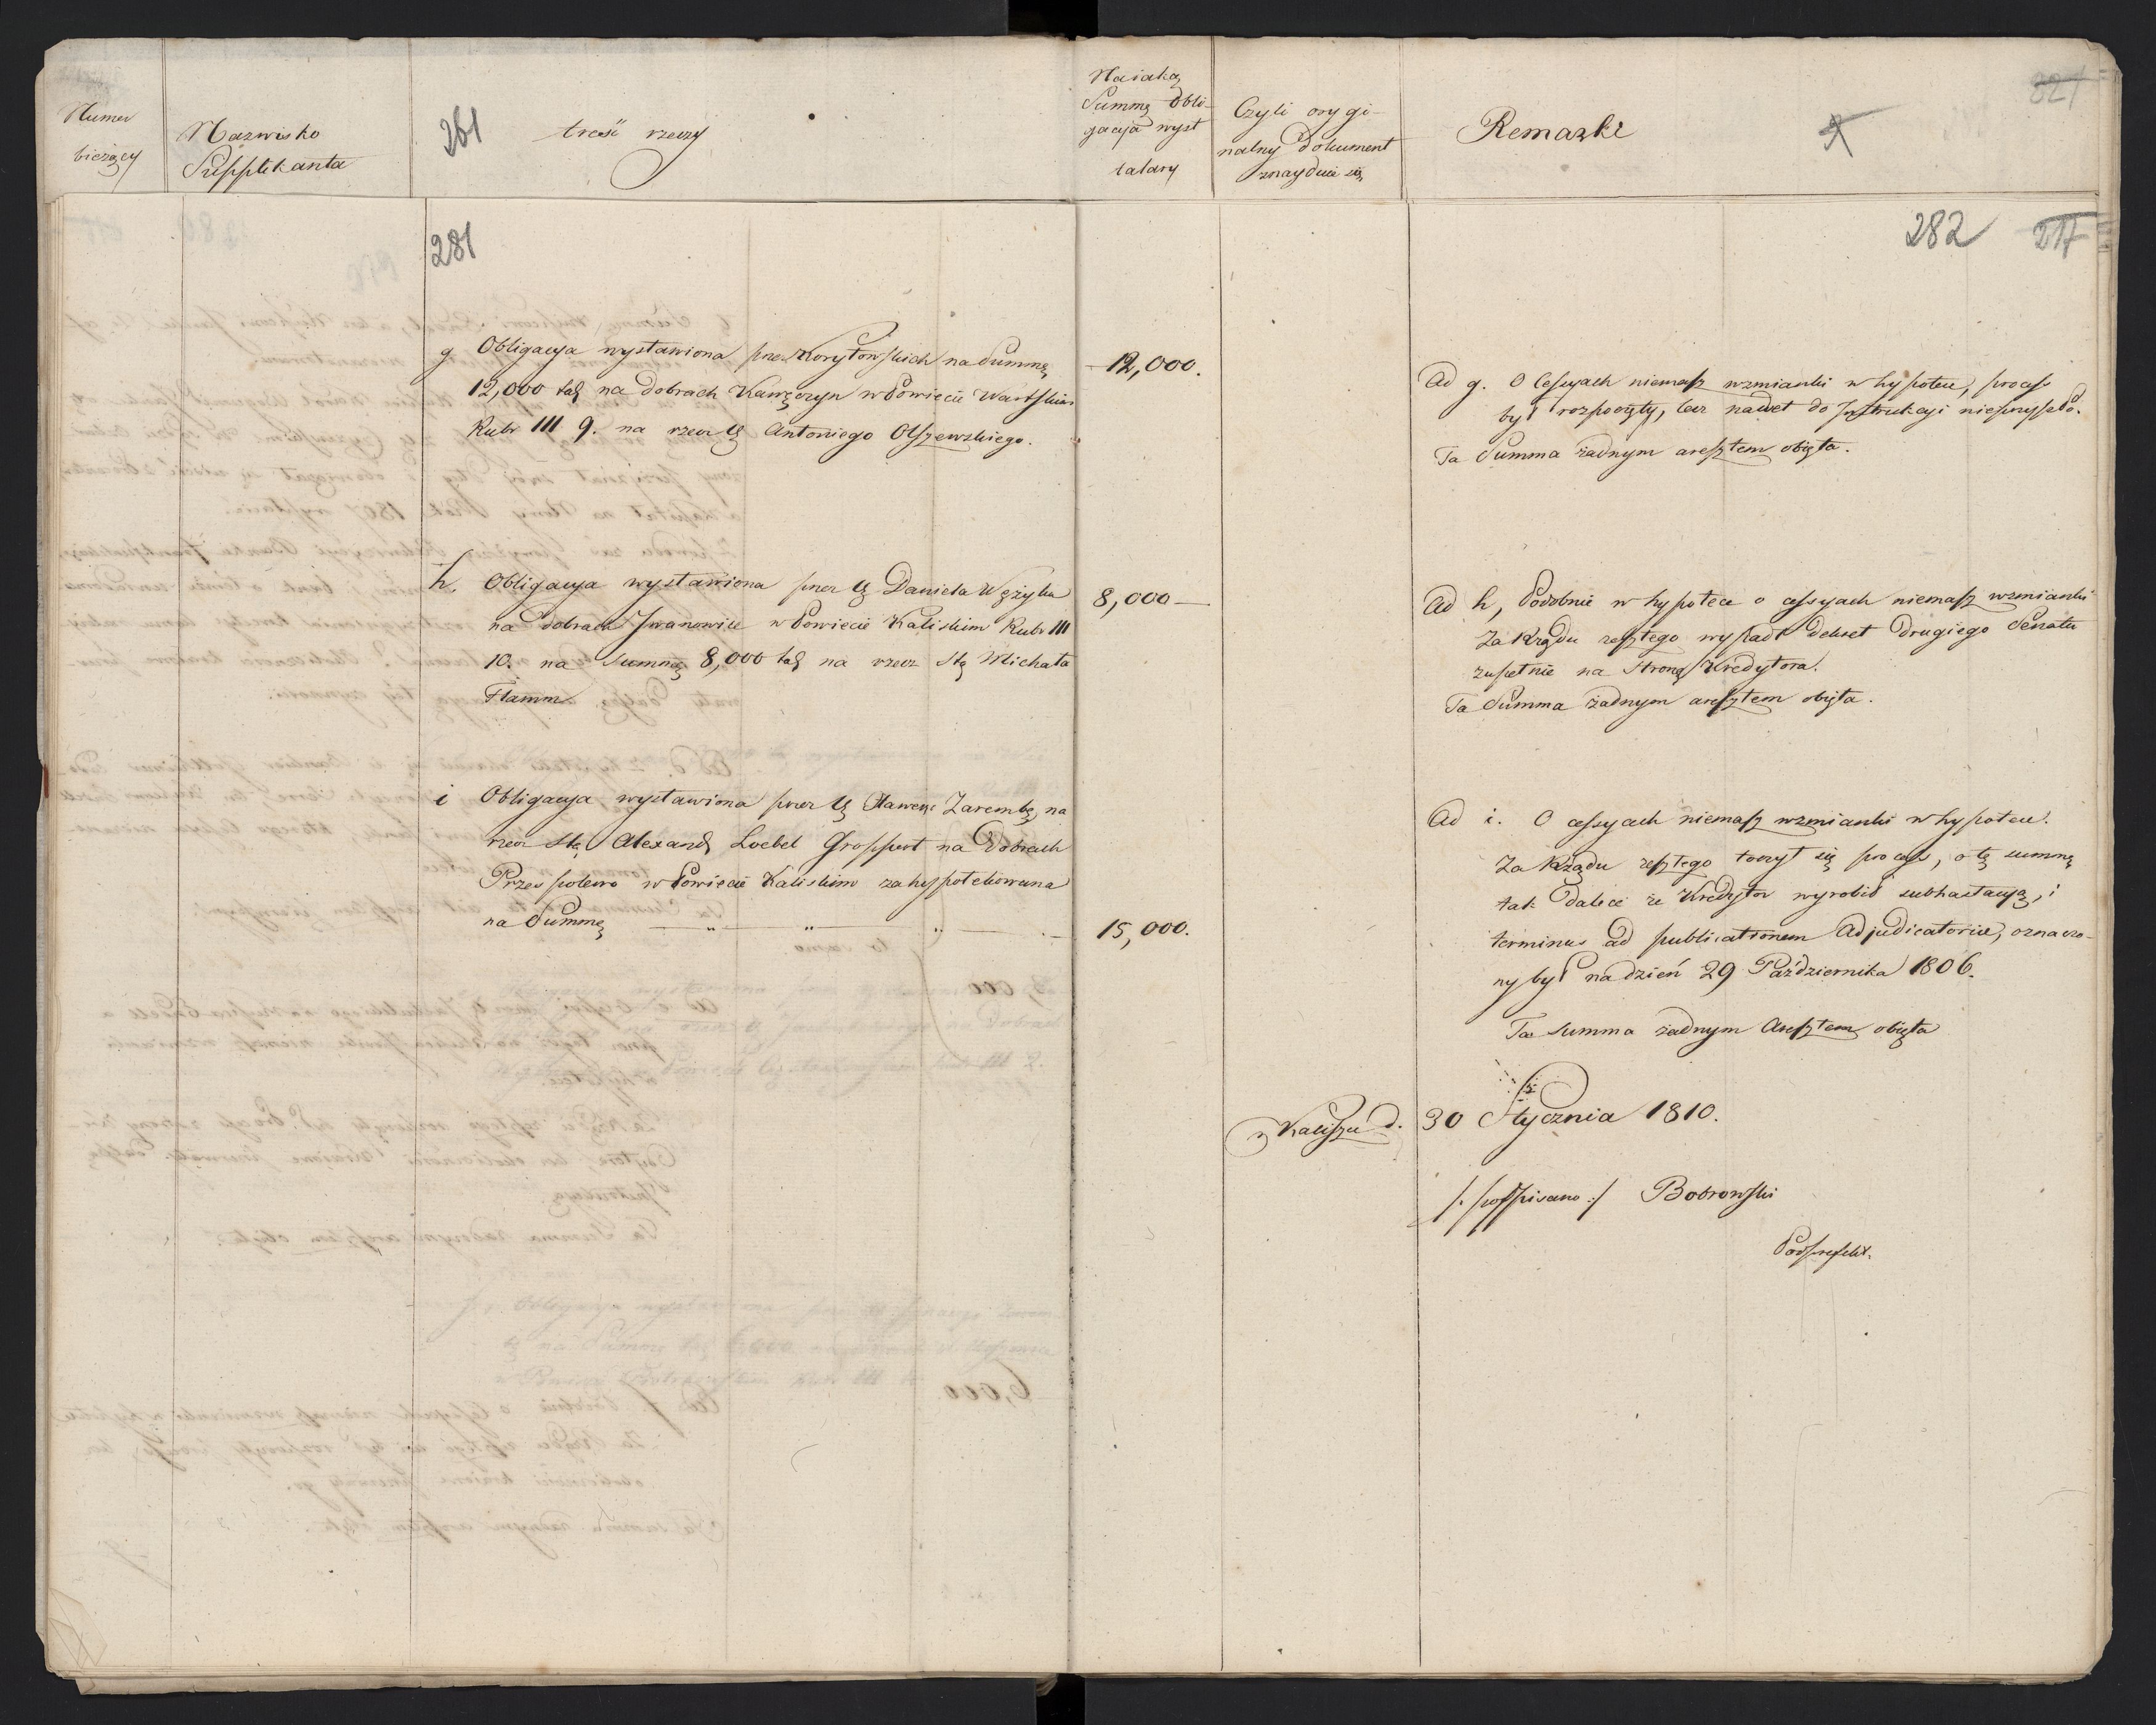 Numer
bieżący
Nazwisko
Supplikanta
261
treść rzeczy
Na iaką
Summę obli-
gacyja wyst
talary
Czyli orygi-
nalny Dokument
znayduie się
Remarki
321
281
282
217
g Obligacya wystawiona przez Korytowskich na Summę
12,000 tal na dobrach Kawęczyn w Powiecie Wartskim
Rubr III 9. na rzecz Antoniego Olszewskiego.
12,000.
Ad g. O Cessyach niemasz wzmianki w hypotece, process
był rozpoczęty, lecz nawet do Instrukcyi nieprzyszło.
Ta Summa żadnym aresztem obięta.
h. Obligacya wystawiona przez Daniela Wężyka
na dobrach Iwanowice w Powiecie Kaliskim Rubr III
10. na Summę 8,000 tal na rzecz Stę Michała
Flamm.
8,000 —
Ad h, Podobnie w hypotece o cessyach niemasz wzmianki
Za Rządu zesztego wypadł dekret Drugiego Senatu
zupełnie na Stronę Kredytora.
Ta Summa żadnym aresztem obięta.
i Obligacya wystawiona przez Xawere Zarembę na
rzecz Stę Alexand Loebel Groppert na Dobrach
Przespolewo w Powiecie Kaliskim zahypotekowana
na Summę — " — " — " —
15,000.
Ad i. O cessyach niemasz wzmianki w hypotece.
Za Rządu zesztego toczył się process, o tę summę
tak Dalece że Kredytor wyrobił subhastacyą, i
terminus ad publicationem Adjudicatoriae, oznaczo-
ny był na dzień 29 Października 1806.
Ta summa żadnym Aresztem obięta
z Kalisza d. 30 Stycznia 1810.
/: podpisano :/ Bobrowski
Podprefekt.